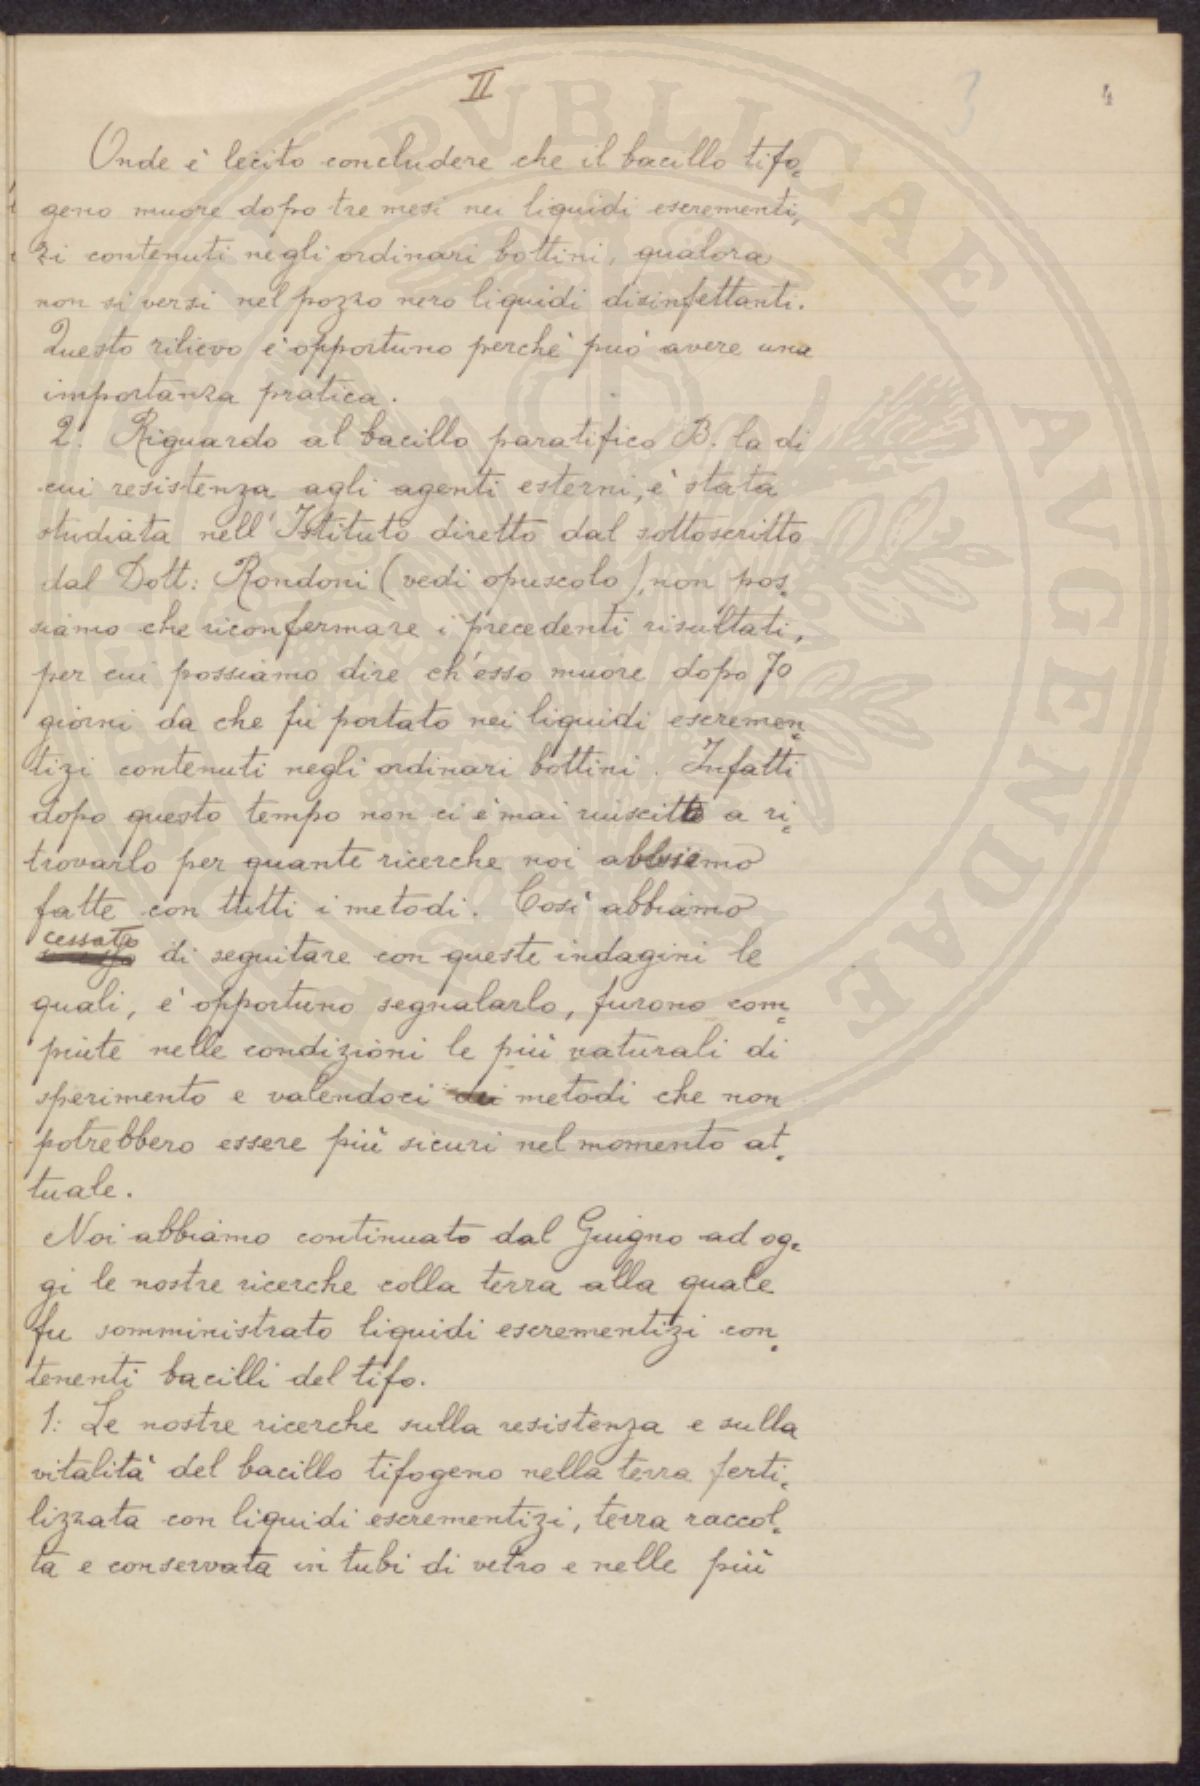 II 3 4
Onde è lecito concludere che il bacillo tifo-
geno muore dopo tre mesi nei liquidi escrementi-
zi contenuti negli ordinari bottini, qualora
non si versi nel pozzo nero liquidi disinfettanti.
Questo rilievo è opportuno perchè può avere una
importanza pratica.
2: Riguardo al bacillo paratifico B. la di
cui resistenza agli agenti esterni, è stata
studiata nell'Istituto diretto dal sottoscritto
dal Dott: Rondoni (vedi opuscolo), non pos-
siamo che riconfermare i precedenti risultati,
per cui possiamo dire ch'esso muore dopo 70
giorni da che fu portato nei liquidi escremen-
tizi contenuti negli ordinari bottini. Infatti
dopo questo tempo non ci è mai riuscito a ri-
trovarlo per quante ricerche noi abbiamo
fatte con tutti i metodi. Così abbiamo
cessato
di seguitare con queste indagini le
quali, è opportuno segnalarlo, furono com-
piute nelle condizioni le più naturali di
sperimento e valendoci di metodi che non
potrebbero essere più sicuri nel momento at-
tuale.
Noi abbiamo continuato dal Giugno ad og-
gi le nostre ricerche colla terra alla quale
fu somministrato liquidi escrementizi con-
tenenti bacilli del tifo.
1: Le nostre ricerche sulla resistenza e sulla
vitalità del bacillo tifogeno nella terra ferti-
lizzata con liquidi escrementizi, terra raccol-
ta e conservata in tubi di vetro e nelle più
PVBLICAE AVGENDAE